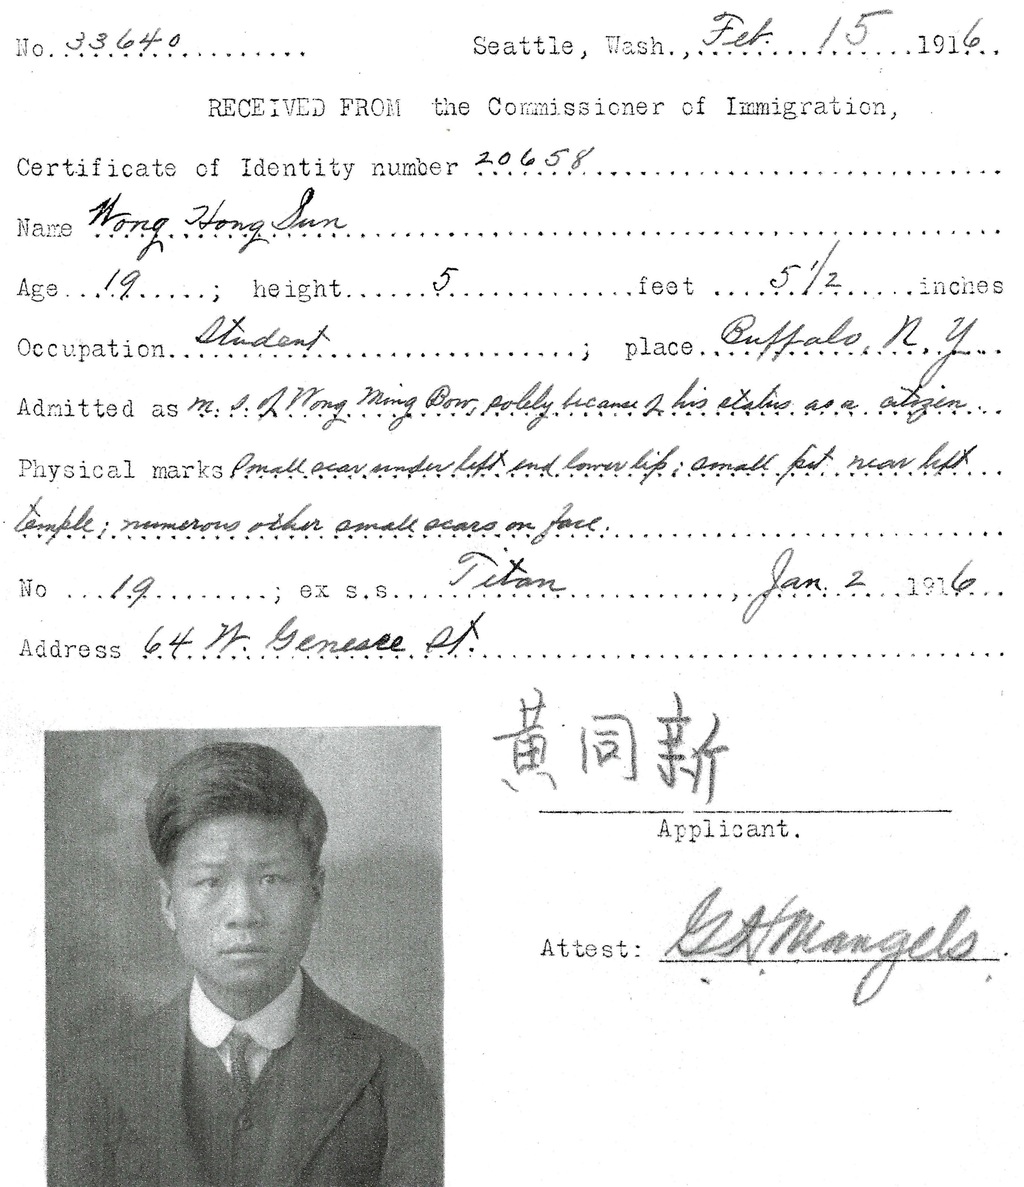 No. 33640 Seattle, Wash., Feb. 15 1916.
RECEIVED FROM the Commissioner of Immigration,
Certificate of Identity number 20658
Name Wong Hong Sun
Age 19; height 5 feet 5 1/2 inches
Occupation Student; place Buffalo, N.Y.
Admitted as m. s. of Wong Ming Bow, solely because of his status as a citizen
Physical marks Small scar under left end lower lip; small pit near left
temple; numerous other small scars on face.
No 19; ex s.s. Titan, Jan. 2 1916
Address 64 W. Genesee St.
黃同新
Applicant.
Attest: G. H. Mangels.